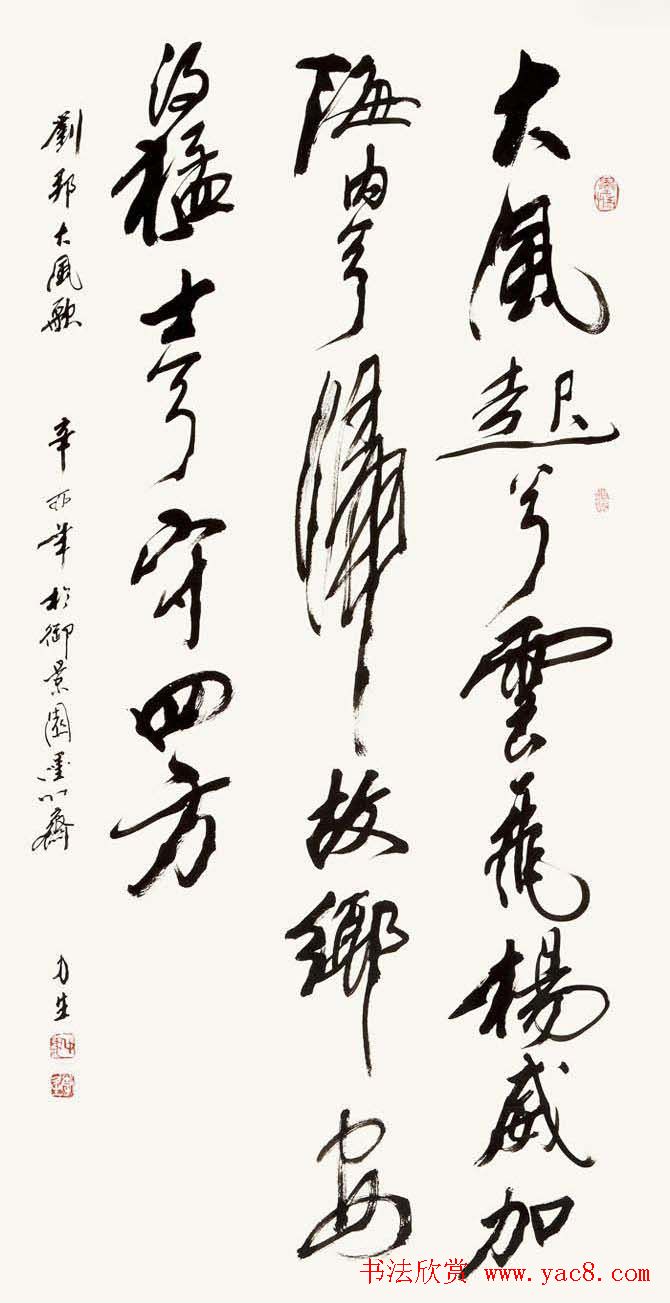 大風起兮雲飛楊威加
海内兮歸故鄉安
得猛士兮守四方
劉邦大風歌 辛卯年於御景園墨心齋 力生
书法欣赏 www.yac8.com